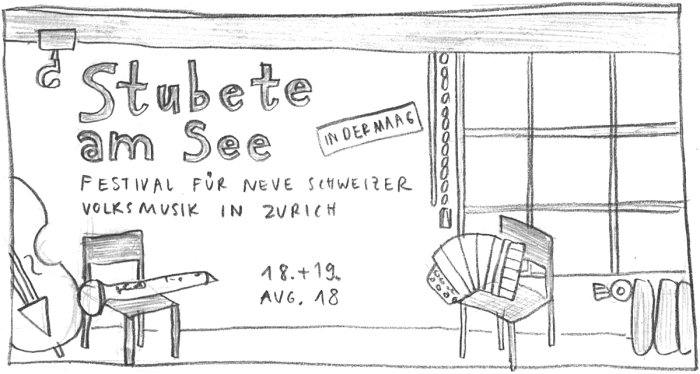 Stubete
am See
IN DER MAAG
FESTIVAL FÜR NEUE SCHWEIZER
VOLKSMUSIK IN ZURICH
18.+19.
AUG. 18